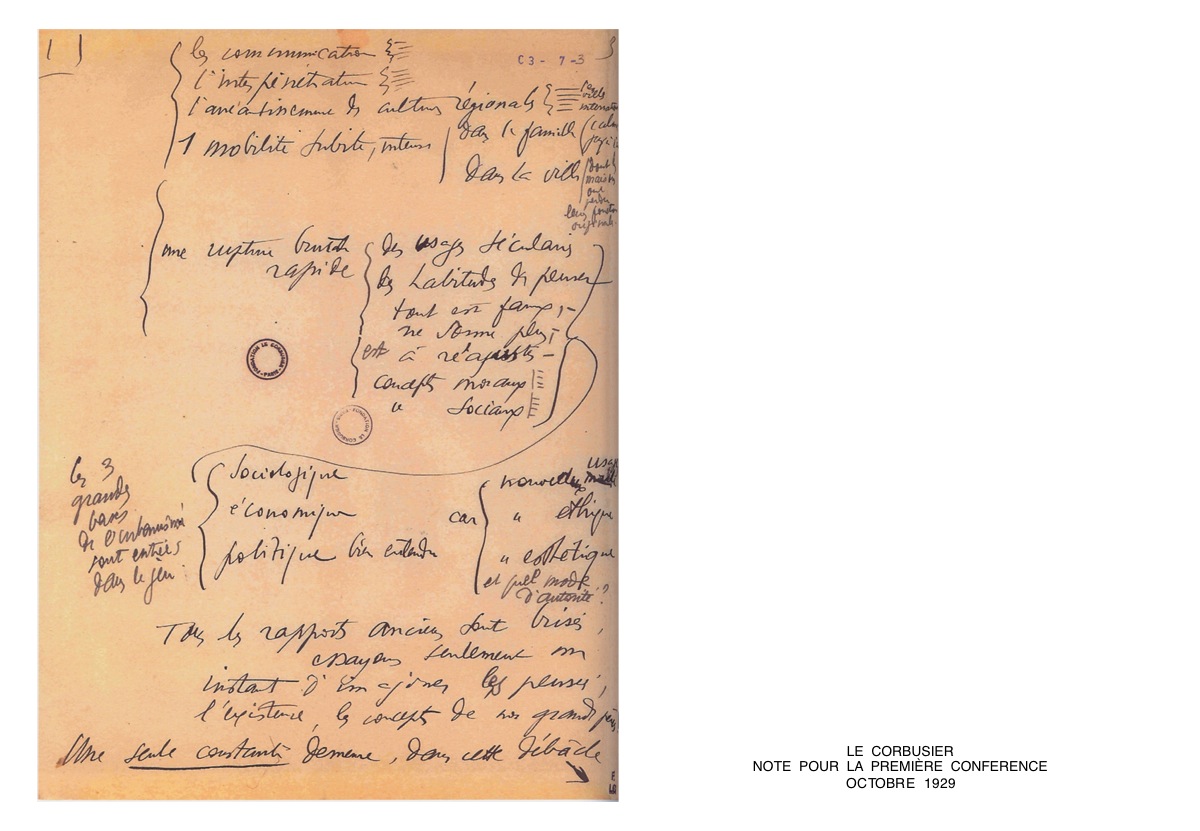 les communication
C3-7-3
l'interpénétration
l'anéantissement des cultures régionales
1 mobilité subite, intense
dans la famille
dans la ville
dont les
maisons
ont
perdu
leur fonction
originale.
une rupture brutale
rapide
des usages séculaires
des habitudes de penser
tout est faux,
ne sonne plus,
est à réajuster
concepts moraux
" sociaux
FONDATION LE CORBUSIER PARIS
FONDATION LE CORBUSIER PARIS
les 3
grandes
bases
de l'urbanisme
sont entrées
dans le jeu.
sociologique
économique
politique bien entendu
car
nouveaux usages
" éthique
" esthétique
et quel mode
d'autorité ?
Tous les rapports anciens sont brisés,
essayons seulement un
instant d'imaginer les pensées,
l'existence, les concepts de nos grands pères
Une seule constante demeure, dans cette débâcle
LE CORBUSIER
NOTE POUR LA PREMIÈRE CONFERENCE
OCTOBRE 1929